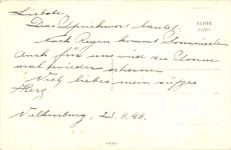 Liebste.
Das Sprichwort lautet:
Nach Regen kommt Sonnenschein
Auch für uns wird die Sonne
mal wieder scheinen
Viel liebes, mein süßes
Herz
Valkenburg, 23.8.40.
ECHTE
FOTO